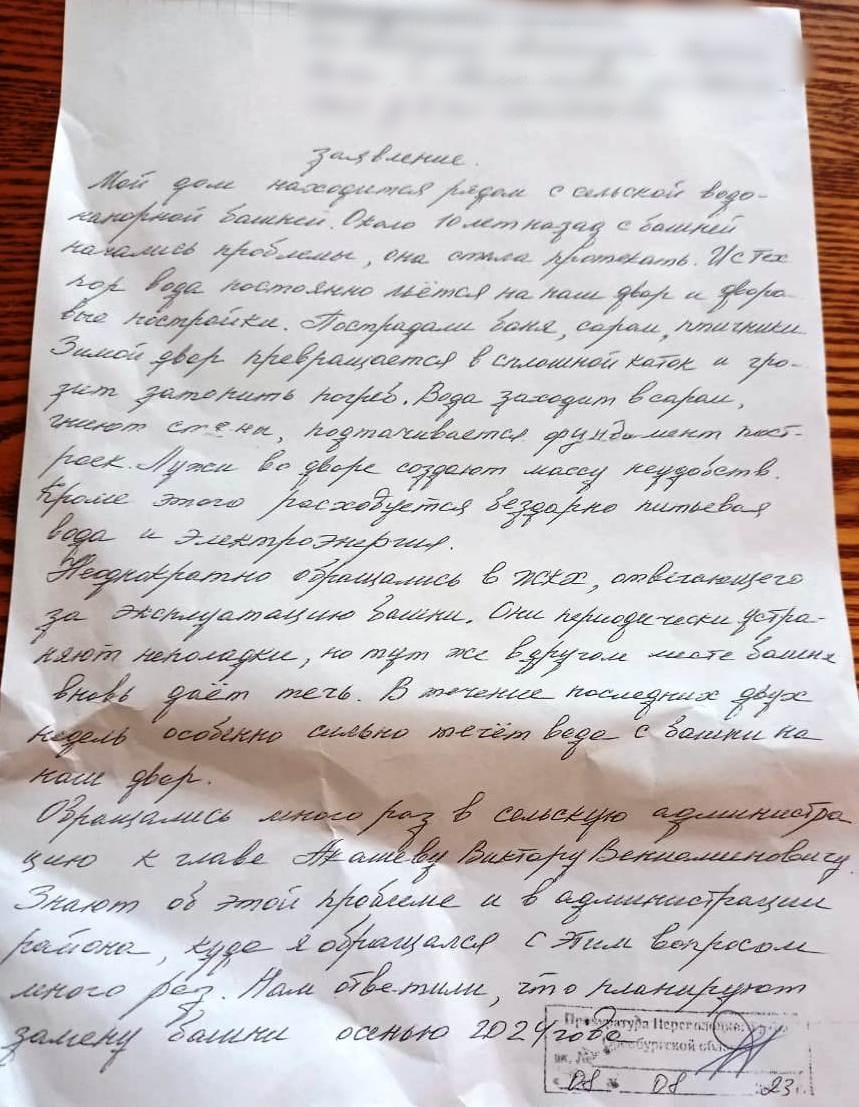 заявление.
Мой дом находится рядом с сельской водо-
напорной башней. Около 10 лет назад с башней
начались проблемы, она стала протекать. И с тех
пор вода постоянно льётся на наш двор и дворо
вые постройки. Пострадали баня, сараи, птичники
Зимой двор превращается в сплошной каток и гро-
зит затопить погреб. Вода заходит в сараи,
гниют стены, подтачивается фундамент пост-
роек. Лужи во дворе создают массу неудобств.
Кроме этого расходуется бездарно питьевая
вода и электроэнергия.
Неоднократно обращались в ЖКХ, отвечающего
за эксплуатацию башни. Они периодически устра-
няют неполадки, но тут же в другом месте башня
вновь даёт течь. В течение последних двух
недель особенно сильно течёт вода с башни на
наш двор.
Обращались много раз в сельскую администра
цию к главе Акашеву Виктору Вениаминовичу.
Знают об этой проблеме и в администрации
района, куда я обращался с этим вопросом
много раз. Нам ответили, что планируют
замену башни осенью 2024 года
Прокуратура
Оренбургской
вх. №
08 08 23 г.